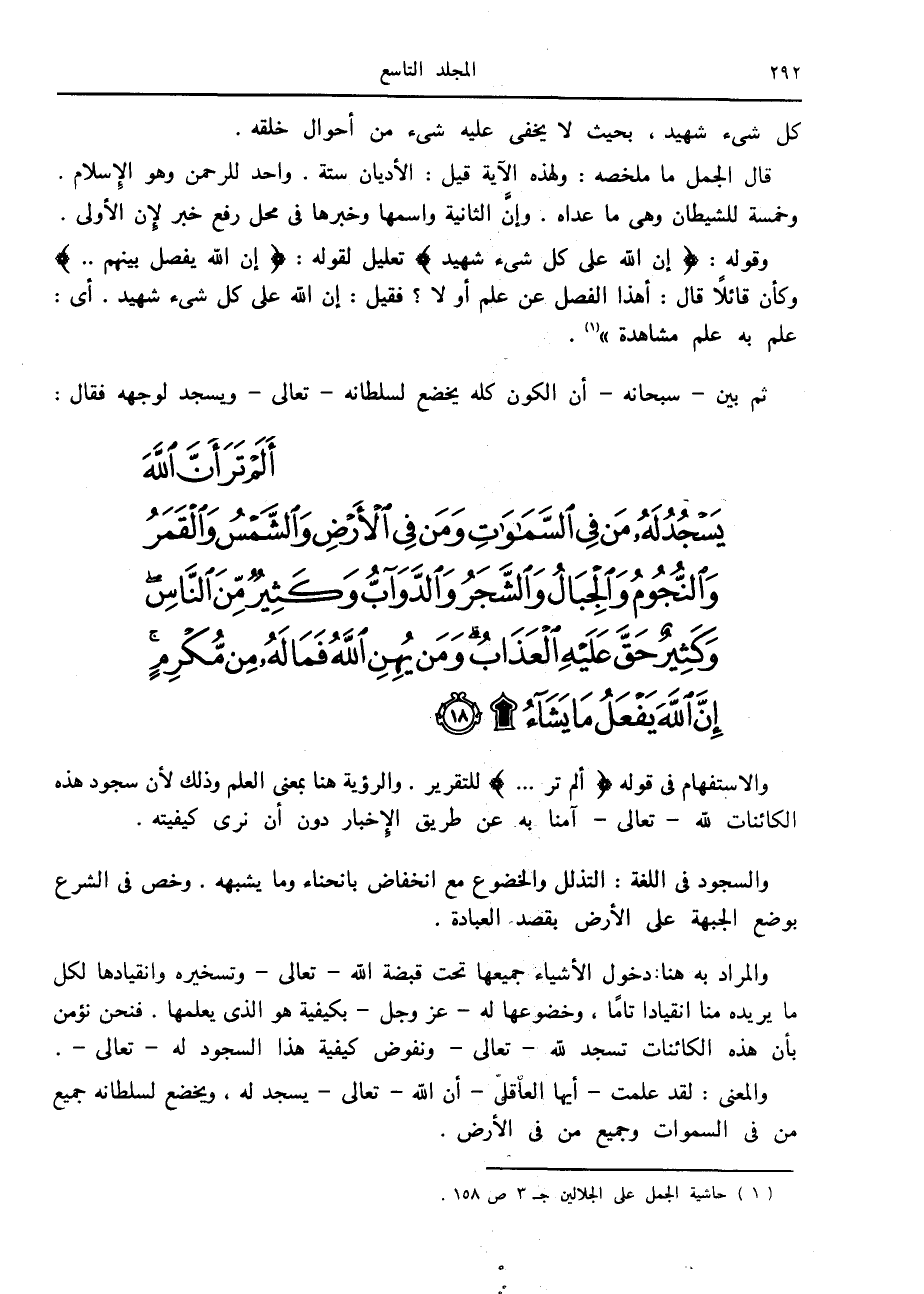 ٢٩٢ المجلد التاسع
كل شىء شهيد ، بحيث لا يخفى عليه شىء من أحوال خلقه .
قال الجمل ما ملخصه : ولهذه الآية قيل : الأديان ستة . واحد للرحمن وهو الإسلام .
وخمسة للشيطان وهى ما عداه . وإنَّ الثانية واسمها وخبرها فى محل رفع خبر لإن الأولى .
وقوله : ﴿ إن الله على كل شىء شهيد ﴾ تعليل لقوله : ﴿ إن الله يفصل بينهم .. ﴾
وكأن قائلًا قال : أهذا الفصل عن علم أو لا ؟ فقيل : إن الله على كل شىء شهيد . أى :
علم به علم مشاهدة »(١) .
ثم بين – سبحانه – أن الكون كله يخضع لسلطانه – تعالى – ويسجد لوجهه فقال :
أَلَمْ تَرَ أَنَّ ٱللَّهَ
يَسْجُدُ لَهُۥ مَن فِى ٱلسَّمَٰوَٰتِ وَمَن فِى ٱلْأَرْضِ وَٱلشَّمْسُ وَٱلْقَمَرُ
وَٱلنُّجُومُ وَٱلْجِبَالُ وَٱلشَّجَرُ وَٱلدَّوَآبُّ وَكَثِيرٌ مِّنَ ٱلنَّاسِ ۖ
وَكَثِيرٌ حَقَّ عَلَيْهِ ٱلْعَذَابُ ۗ وَمَن يُهِنِ ٱللَّهُ فَمَا لَهُۥ مِن مُّكْرِمٍ ۚ
إِنَّ ٱللَّهَ يَفْعَلُ مَا يَشَآءُ ۩ ١٨
والاستفهام فى قوله ﴿ ألم تر ... ﴾ للتقرير . والرؤية هنا بمعنى العلم وذلك لأن سجود هذه
الكائنات لله – تعالى – آمنا به عن طريق الإخبار دون أن نرى كيفيته .
والسجود فى اللغة : التذلل والخضوع مع انخفاض بانحناء وما يشبهه . وخص فى الشرع
بوضع الجبهة على الأرض بقصد العبادة .
والمراد به هنا : دخول الأشياء جميعها تحت قبضة الله – تعالى – وتسخيره وانقيادها لكل
ما يريده منا انقيادا تامًا ، وخضوعها له – عز وجل – بكيفية هو الذى يعلمها . فنحن نؤمن
بأن هذه الكائنات تسجد لله – تعالى – ونفوض كيفية هذا السجود له – تعالى – .
والمعنى : لقد علمت – أيها العاقل – أن الله – تعالى – يسجد له ، ويخضع لسلطانه جميع
من فى السموات وجميع من فى الأرض .
( ١ ) حاشية الجمل على الجلالين جـ ٣ ص ١٥٨ .